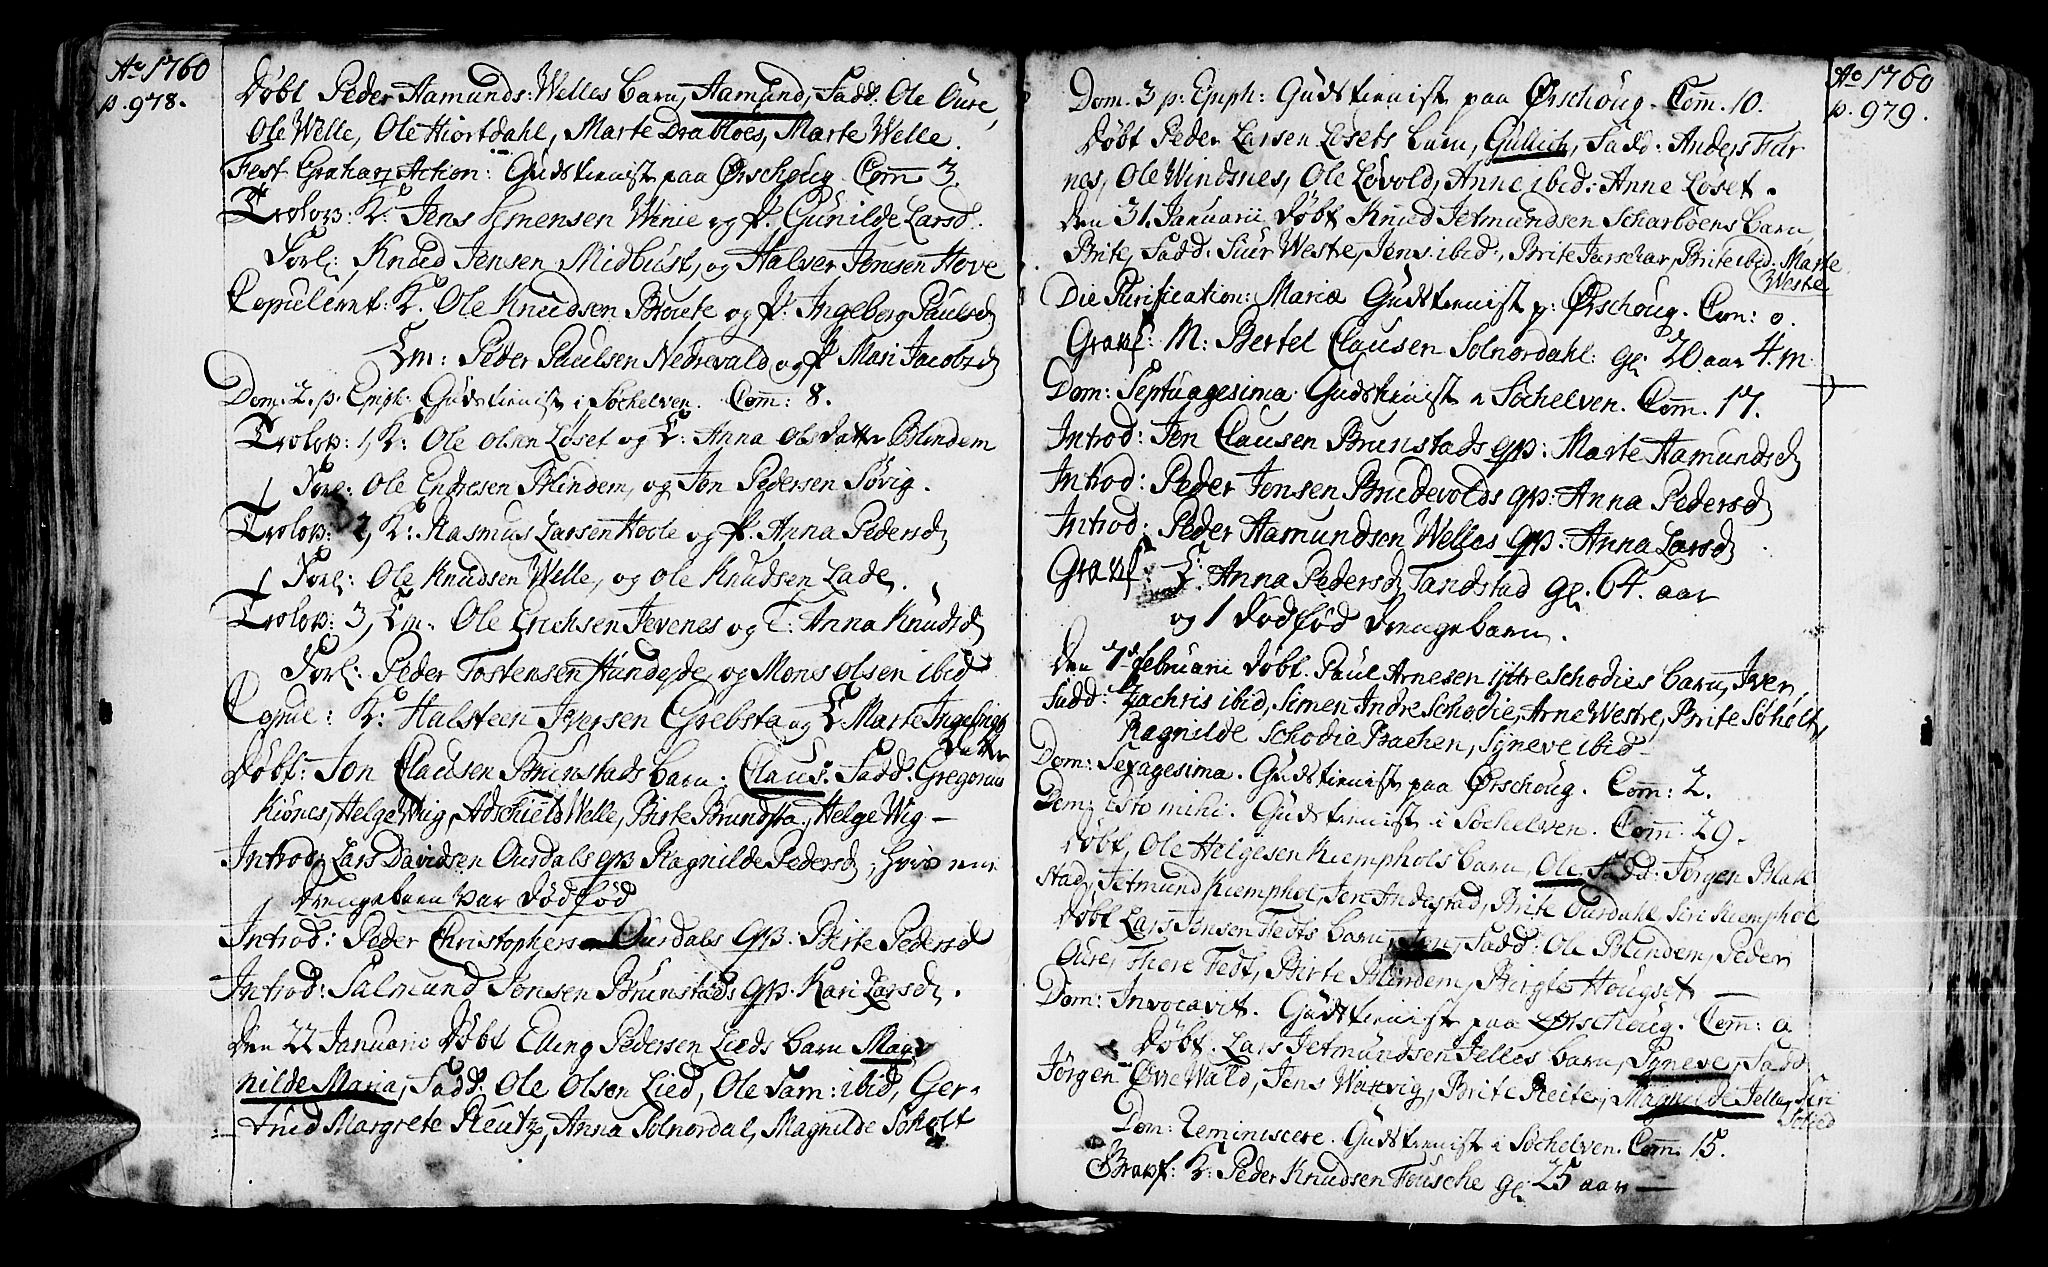 Ao 1760
p. 978.
Døbt Peder Aamunds: Welles barn, Aamund, Fadd: Ole Oure,
Ole Welle, Ole Hiortdahl, Marte Drabloes, Marte Welle.
Fest Grahar Action: Gudstienist paa Ørschoug. Com 3.
Trolov: K: Jens Semensen Winie og P. Gunilde Larsd.
Forl: Knud Jensen Midbust, og Halver Jensen Hove
Copuleret: K. Ole Knudsen Broute og P: Ingeborg Paulsd
Em: Peder Paulsen Nedrevald og P Mari Jacobsd
Dom. 2. p. Epiph: Gudstienist i Søchelven. Com: 8.
Trolov: 1, K: Ole Olsen Løset og E: Anna Olsdatter Blindem
Forl: Ole Endresen Blindem, og Jon Pedersen Søvig.
Trolov: 2, K: Rasmus Larsen Hoole og P. Anna Pedersd
Forl: Ole Knudsen Welle, og Ole Knudsen Lade.
Trolov: 3, Em: Ole Erichsen Jevenes og E: Anna Knudsd
Forl: Peder Tostensen Hundejde, og Mons Olsen ibid
Copule: K: Halsteen Iversen Grebsta og E: Marte Ingebrigts
Datter
Døbt: Jon Clausen Brunstads barn. Claus. Fadd. Gregorius
Kiønes, Helge Wiig, Adschield Welle, Birte Brundsta, Helge Wig —
Introd: Lars Davidsen Ourdals qv: Ragnilde Pedersd, hvis
drengebarn var dødfød
Introd: Peder Christophers Ourdals qv: Berte Pedersd
Introd: Salmund Jonsen Brunstads qv. Kari Larsd.
Den 22 Januarii Døbt Elling Pedersen Lieds barn Mag-
nilde Maria, Fadd: Ole Olsen Lied, Ole Sam: ibid, Ger-
trud Margrete Reutz, Anna Solnordal, Magnilde Scholt
Ao 1760
p. 979.
Dom. 3 p: Epiph: Gudstienist paa Ørschoug. Com. 10.
Døbt Peder Larsen Løsets barn, Gullich, Fadd: Anders Far
nes, Ole Windsnes, Ole Løvold, Anne ibid: Anne Løset.
Den 31. Januarii Døbt Knud Jetmundsen Scharboens barn
Brite, Fadd: Siur Westre, Jens ibid:, Brite Jarschar, Brite ibid: Marte
Westre
Die Purification: Mariæ Gudstienist p: Ørschoug. Com: 0.
Gravf: M: Bertel Clausen Solnordahl: gl. 20 aar 4. m
Dom: Septuagesima. Gudstienist i Søchelven. Com. 17.
Introd: Jon Clausen Brunstads qv: Marte Aamundsd
Introd: Peder Jonsen Brudevolds qv: Anna Pedersd
Introd: Peder Aamundsen Welles qv: Anna Larsd
Gravf: E: Anna Pedersd Tandstad gl. 64. aar
og 1 dødfød drengebarn.
Den 7de Februarii døbt. Paul Arnesen ijttre Schodies barn, Iver,
Fadd: Zachris ibid, Simen Andre Schodie, Arne Westre, Brite Søholt,
Ragnilde Schodie Bachen, Sijneve ibid
Dom: Sexagesima. Gudstienist paa Ørschoug. Com: 2.
Dom, Esto mihi. Gudstienist i Søchelven. Com: 29.
Døbt, Ole Helgesen Kiemphols barn, Ole, Fadd: Jørgen Blak
stad, Jetmund Kiemphol, Jens Andestad, Brite Ourdahl, Siri Kiemphol
Døbt Lars Jonsen Fedts barn, Jon, Fadd: Ole Blindem, Peder
Oure, Thore Fedt, Birte Blindem, Birgte Hougset —
Dom: Invocavit. Gudstienist paa Ørschoug. Com: 0
Døbt. Lars Jetmundsen Jelles barn, Sijneve, Fadd
Jørgen Øvre Wald, Jens Watvig, Brite Reite, Magnilde Jelle, Siri
Dom: Reminiscere. Gudstienist i Søchelven. Com. 15.
Gravf: K: Peder Knudsen Fousche gl. 25 aar —